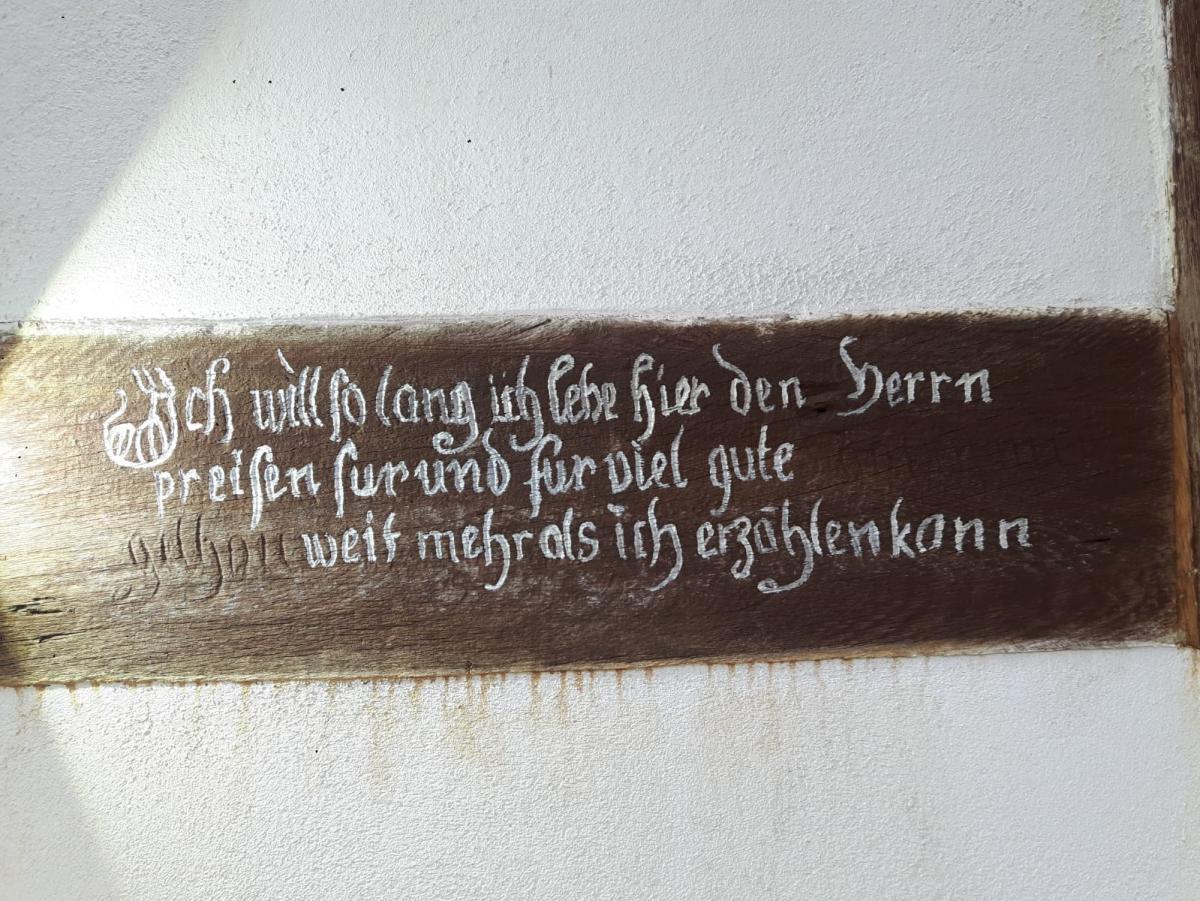 Ich will so lang ich lebe hier den Herrn
preisen fur und fur viel gute
weit mehr als ich erzählen kann